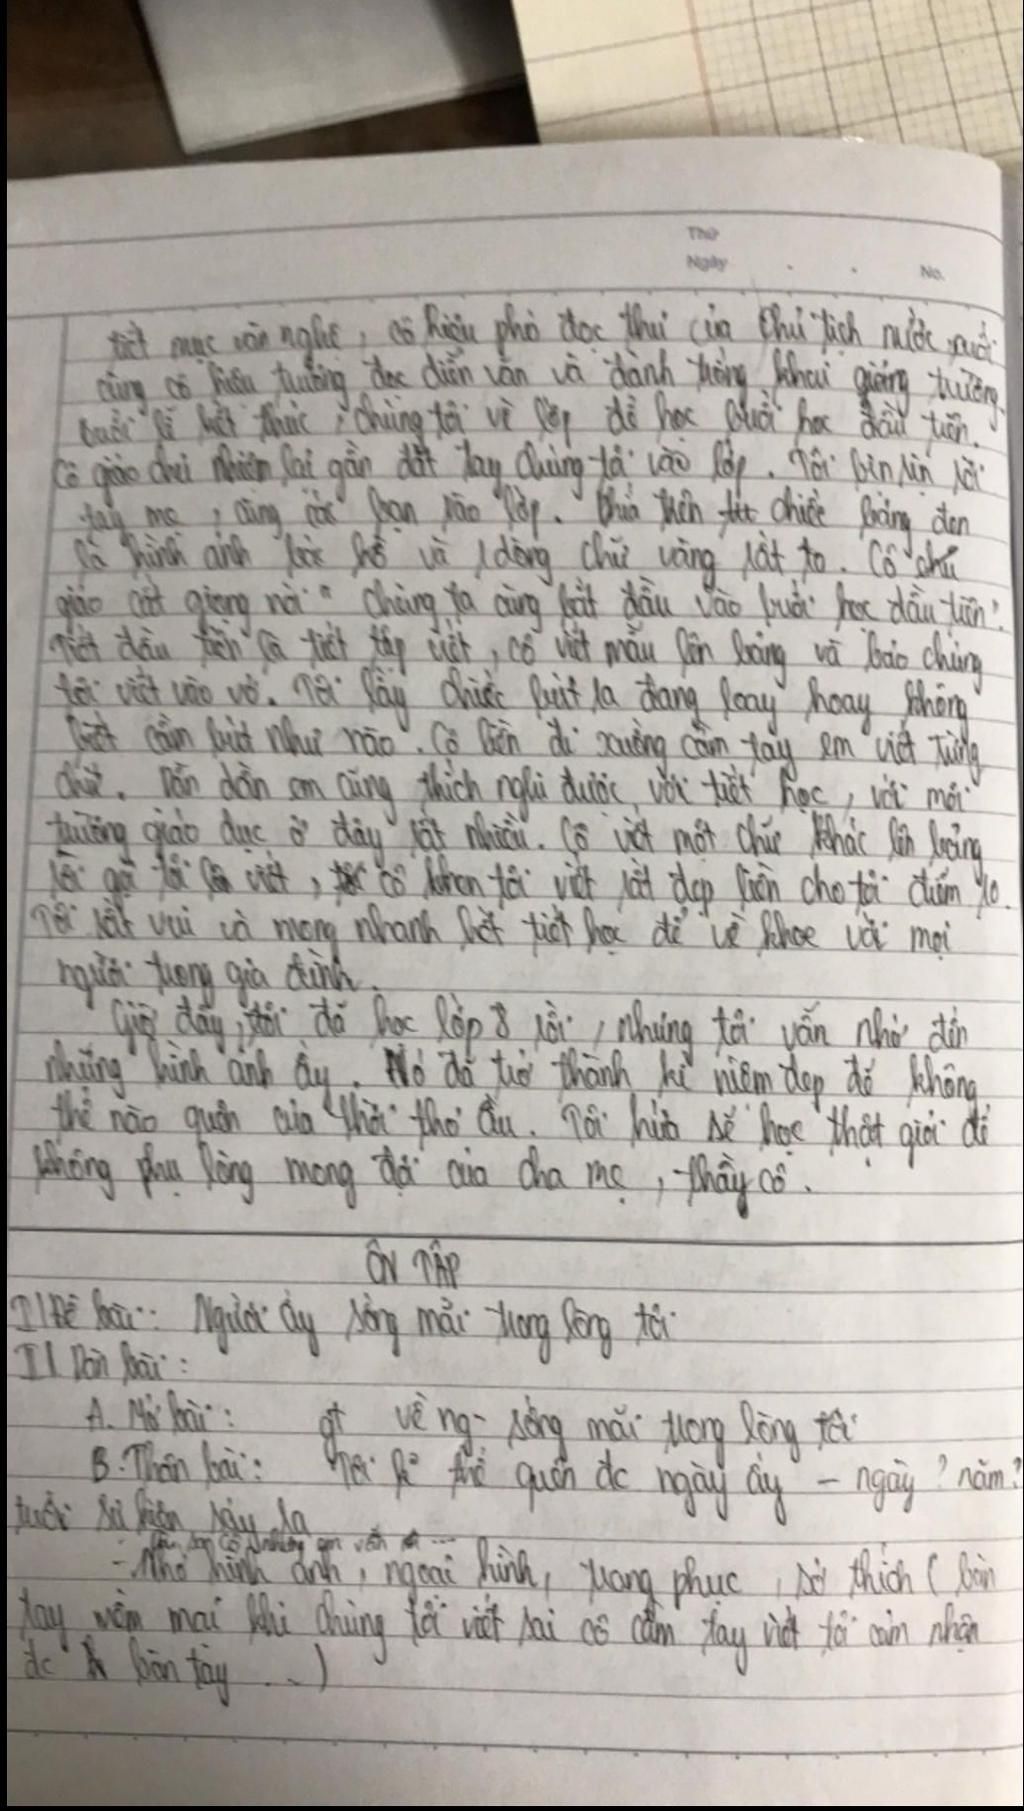 Thứ
Ngày . . No.
tiết mục văn nghệ, cô hiệu phó đọc thư của chủ tịch nước,
cùng cô hiệu trưởng đọc diễn văn và đánh trống khai giảng trường.
buổi lễ kết thúc, chúng tôi về lớp để học buổi học đầu tiên.
Cô giáo chủ nhiệm lại gần dắt tay chúng tôi vào lớp. Tôi bịn rịn rời
tay mẹ, cùng các bạn vào lớp. Phía trên chiếc bảng đen
là hình ảnh bác hồ và 1 dòng chữ vàng rất to. Cô
giáo cất giọng nói " chúng ta cùng bắt đầu vào buổi học đầu tiên".
Tiết đầu tiên là tiết tập viết, cô viết mẫu lên bảng và bảo chúng
tôi viết vào vở. Tôi lấy chiếc bút ra đang loay hoay không
biết cầm bút như nào. Cô liền đi xuống cầm tay em viết từng
chữ. Dần dần em cũng thích nghi được với tiết học, với môi
trường giáo dục ở đây rất nhiều. Cô viết một chữ khác lên bảng
rồi gọi tôi lên viết, cô khen tôi viết rất đẹp liền cho tôi điểm 10.
Tôi rất vui và mong nhanh hết tiết học để về khoe với mọi
người trong gia đình.
Giờ đây, tôi đã học lớp 8 rồi, nhưng tôi vẫn nhớ đến
những hình ảnh ấy. Nó đã trở thành kỉ niệm đẹp đẽ không
thể nào quên của thời thơ ấu. Tôi hứa sẽ học thật giỏi để
không phụ lòng mong đợi của cha mẹ, thầy cô.
ÔN TẬP
I/ Đề bài: Người ấy sống mãi trong lòng tôi
II/ Dàn bài:
A. Mở bài: gt về ng- sống mãi trong lòng tôi
B. Thân bài: Tôi k thể quên đc ngày ấy - ngày? năm?
tuổi sự kiện xảy ra
- Nhớ hình ảnh, ngoại hình, trang phục, sở thích ( bàn
tay mềm mại khi chúng tôi viết sai cô cầm tay viết tôi cảm nhận
đc bàn tay ...)